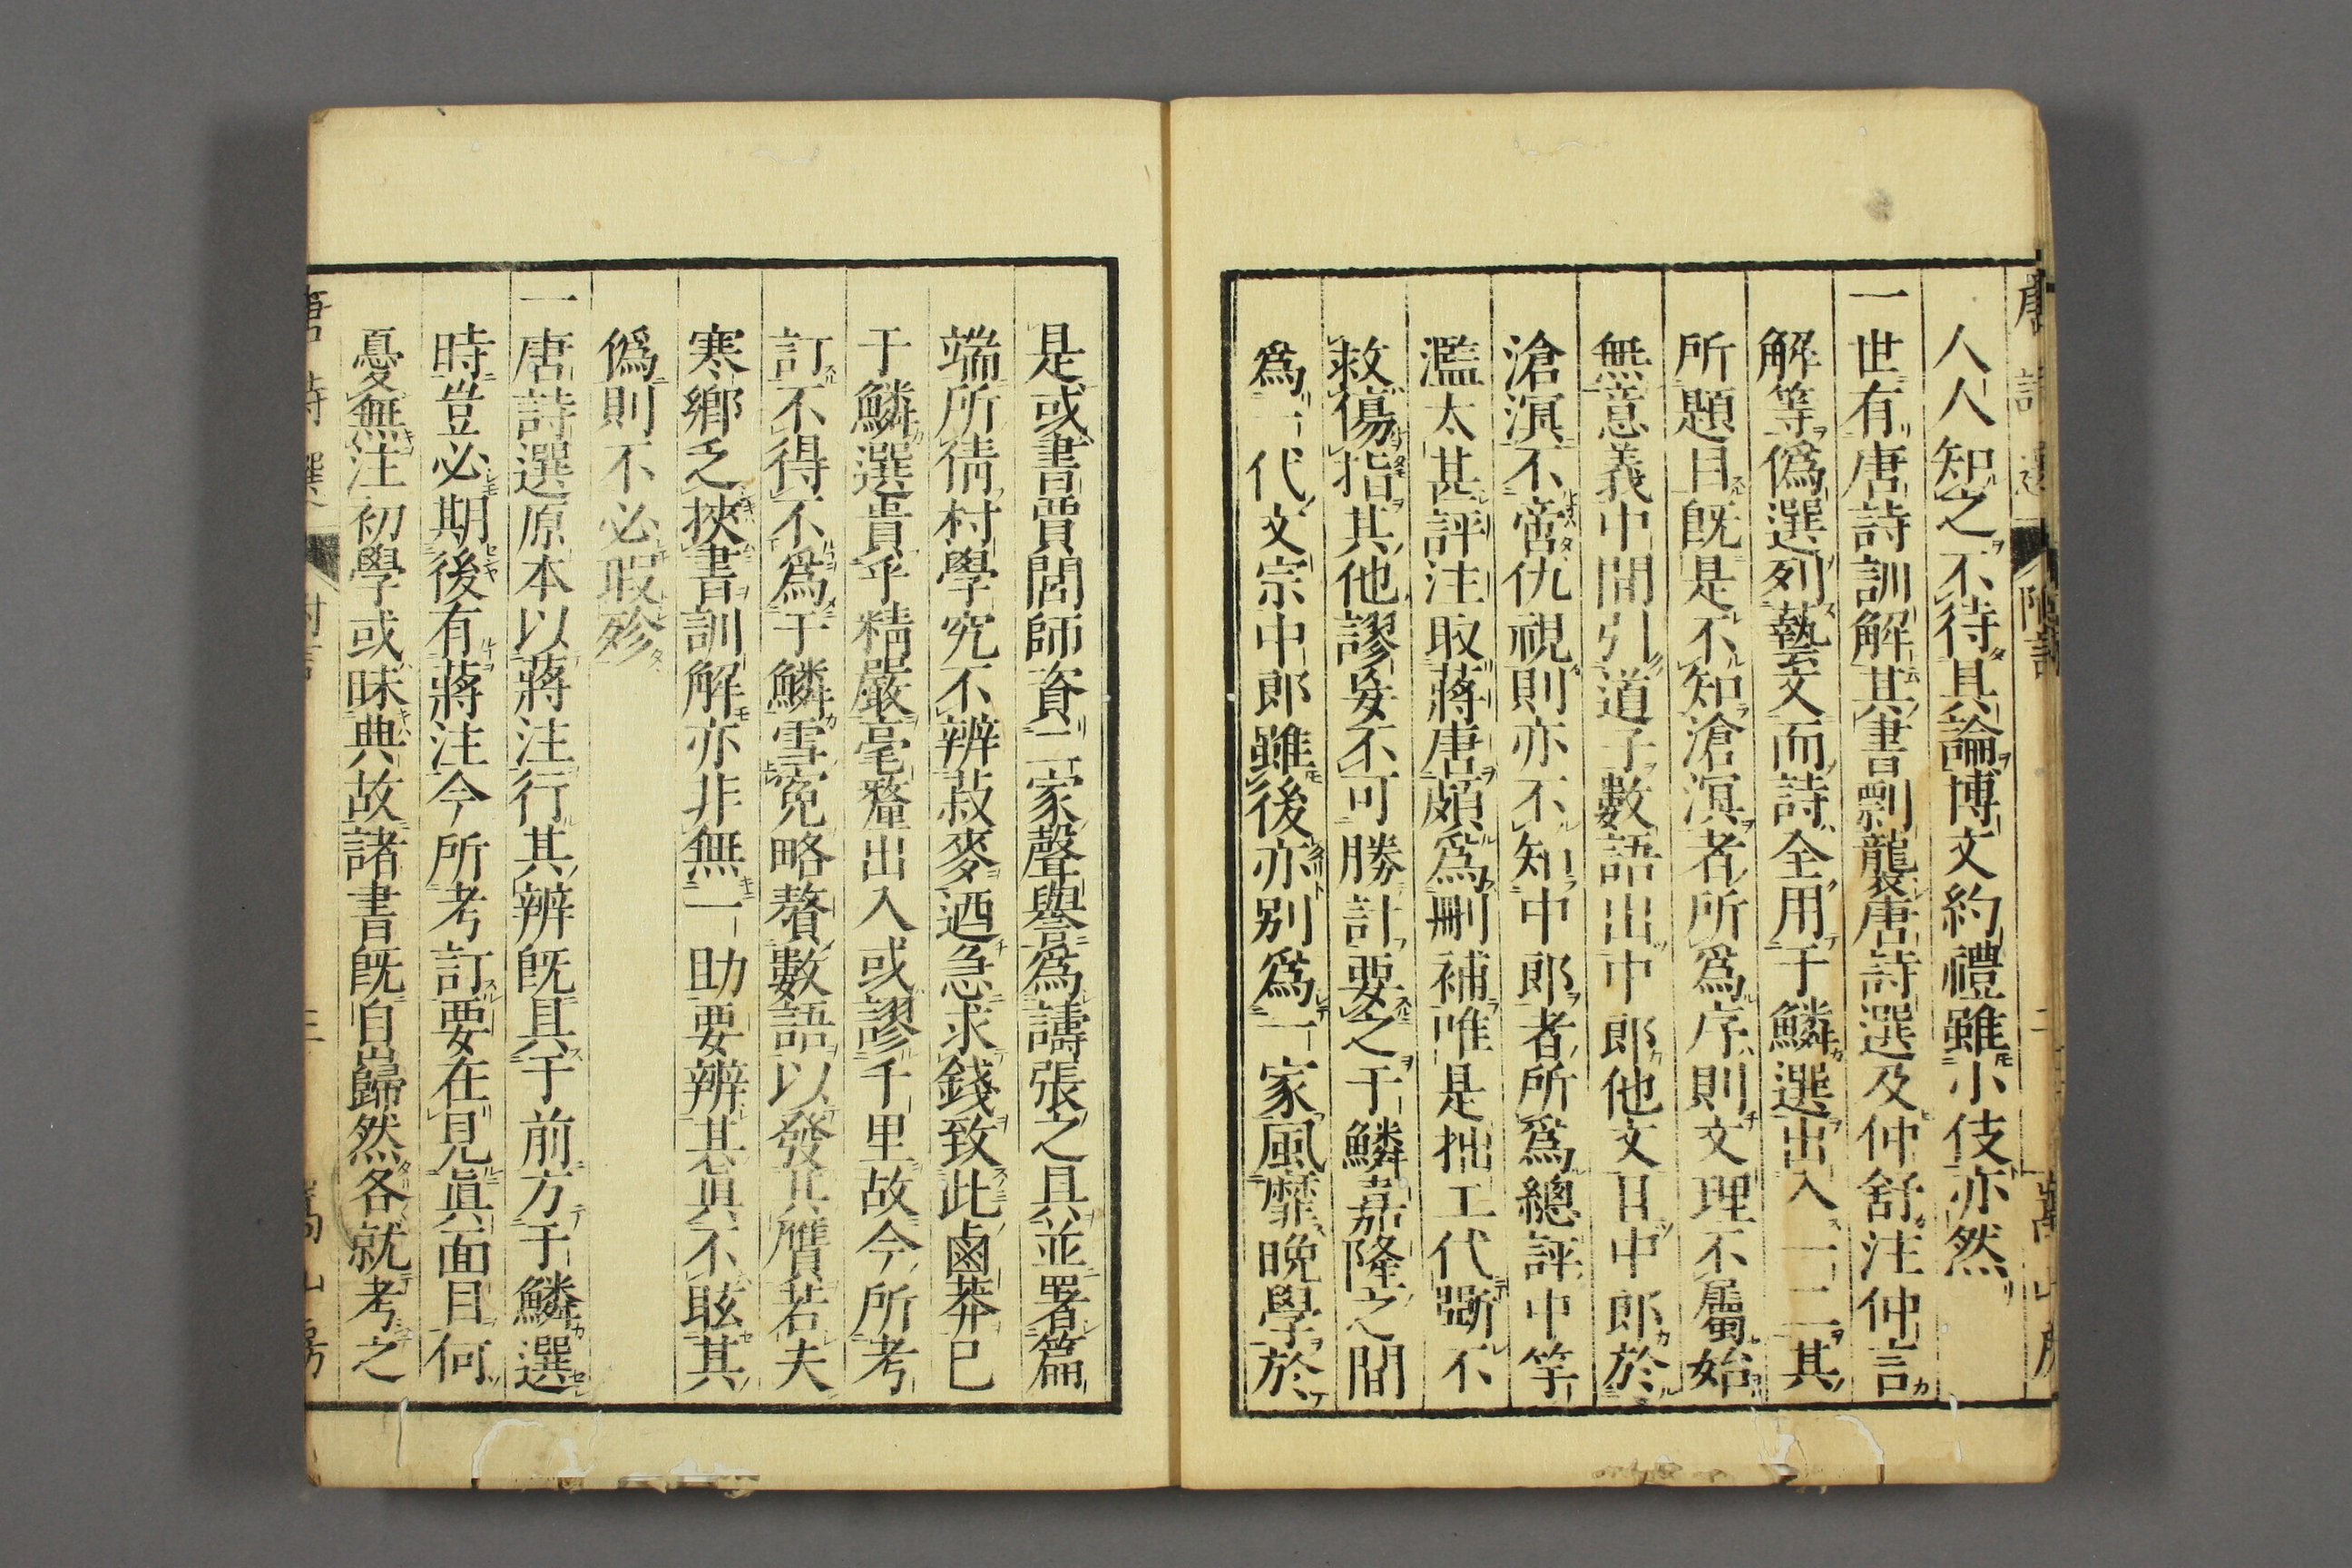 唐詩選 附言 二 嵩山房
人人知之不待具論博文約禮雖小伎亦然
一世有唐詩訓解其書剽襲唐詩選及仲舒注仲言
解等僞選列藝文而詩全用于鱗選出入一二其
所題目既是不知滄溟者所爲序則文理不屬始
無意義中間引道子數語出中郎他文日中郎於
滄溟不啻仇視則亦不知中郎者所爲總評中竿
濫太甚評注取蔣唐頗爲刪補唯是拙工代斲不
救傷指其他謬妄不可勝計要之于鱗嘉隆之間
爲一代文宗中郎雖後亦別爲一家風靡晚學於
是或書賈閭師資二家聲譽爲譸張之具並署篇
端所倩村學究不辨菽麥迺急求錢致此鹵莽已
于鱗選貴乎精嚴毫釐出入或謬千里故今所考
訂不得不爲于鱗雪寃略贅數語以發其贋若夫
寒鄉乏挾書訓解亦非無一助要辨其眞不眩其
僞則不必瑕殄
一唐詩選原本以蔣注行其辨既具于前方于鱗選
時豈必期後有蔣注今所考訂要在見眞面目何
憂無注初學或昧典故諸書既自巋然各就考之
唐詩選 附言 三 嵩山房